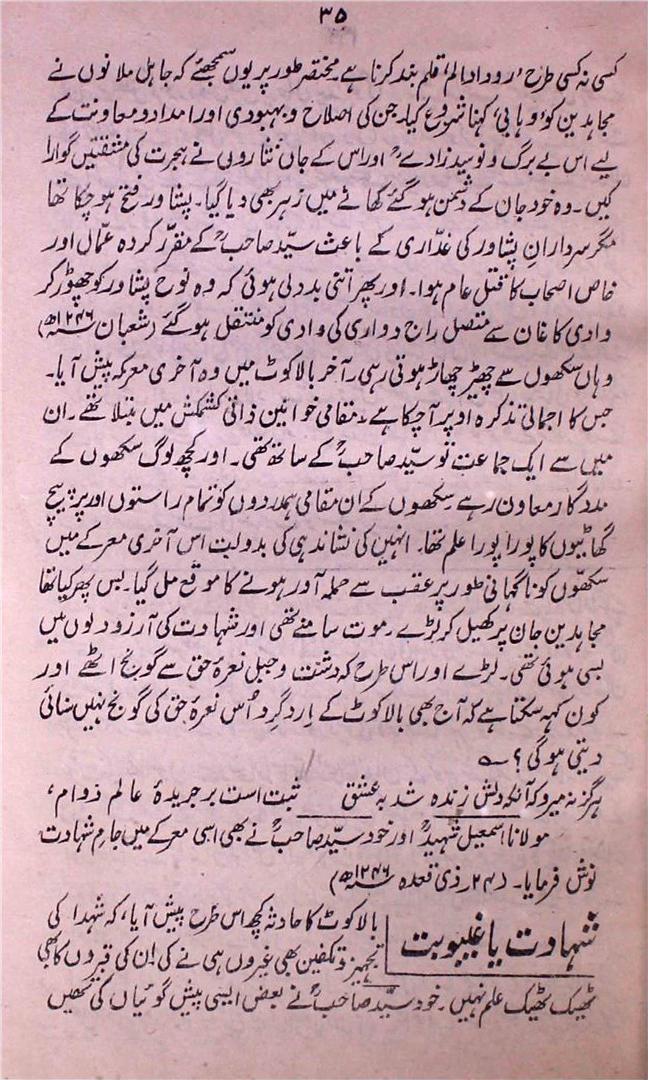 ۳۵
کسی نہ کسی طرح ’رودادِ الم‘ قلم بند کرنا ہے۔ مختصر طور پر یوں سمجھئے کہ جاہل ملانوں نے
مجاہدین کو ’وہابی‘ کہنا شروع کیا۔ جن کی اصلاح و بہبودی اور امداد و معاونت کے
لیے اس بے برگ و نوا سید زادےؒ اور اس کے جاں نثاروں نے ہجرت کی مشقتیں گوارا
کیں۔ وہ خود جان کے دشمن ہوگئے کھانے میں زہر بھی دیا گیا۔ پشاور فتح ہو چکا تھا
مگر سردارانِ پشاور کی غدّاری کے باعث سیّد صاحبؒ کے مقرّر کردہ عمّال اور
خاص اصحاب کا قتل عام ہوا۔ اور پھر اتنی بددلی ہوئی کہ وہ نواحِ پشاور کو چھوڑ کر
وادی کاغان سے متصل راج دواری کی وادی کو منتقل ہوگئے (شعبان ۱۲۴۶ھ)
وہاں سکھوں سے چھیڑ چھاڑ ہوتی رہی۔ آخر بالاکوٹ میں وہ آخری معرکہ پیش آیا۔
جس کا اجمالی تذکرہ اوپر آچکا ہے۔ مقامی خوانین ذاتی کشمکش میں مبتلا تھے۔ ان
میں سے ایک جماعت تو سیّد صاحبؒ کے ساتھ تھی۔ اور کچھ لوگ سکھوں کے
مددگار معاون رہے سکھوں کے ان مقامی ہمدردوں کو تمام راستوں اور پرپیچ
گھاٹیوں کا پورا پورا علم تھا۔ انہیں کی نشاندہی کی بدولت اس آخری معرکے میں
سکھّوں کو ناگہانی طور پر عقب سے حملہ آور ہونے کا موقع مل گیا۔ بس پھر کیا تھا
مجاہدین جان پر کھیل کر لڑے۔ موت سامنے تھی اور شہادت کی آرزو دلوں میں
بسی ہوئی تھی۔ لڑے اور اس طرح کہ دشت و جبل نعرۂ حق سے گونج اٹھے اور
کون کہہ سکتا ہے کہ آج بھی بالاکوٹ کے اِرد گِرد اُس نعرۂ حق کی گونج نہیں سنائی
دیتی ہوگی؟
ہرگز نہ میرد آنکہ دلش زندہ شد بہ عشق ثبت است بر جریدۂ عالم دوام،
مولانا اسمٰعیل شہیدؒ اور خود سیّد صاحبؒ نے بھی اسی معرکے میں جامِ شہادت
نوش فرمایا۔ (۲۴ ذی قعدہ ۱۲۴۶ھ)
شہادت یا غیبوبت
بالاکوٹ کا حادثہ کچھ اس طرح پیش آیا، کہ شہدا کی
تجہیز و تکفین بھی غیروں ہی نے کی! ان کی قبروں کا بھی
ٹھیک ٹھیک علم نہیں۔ خود سیّد صاحبؒ نے بعض ایسی پیش گوئیاں کی تھیں